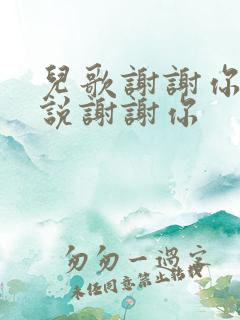 兒歌謝謝你
説謝謝你
匆匆一過客
未經同意禁止轉載